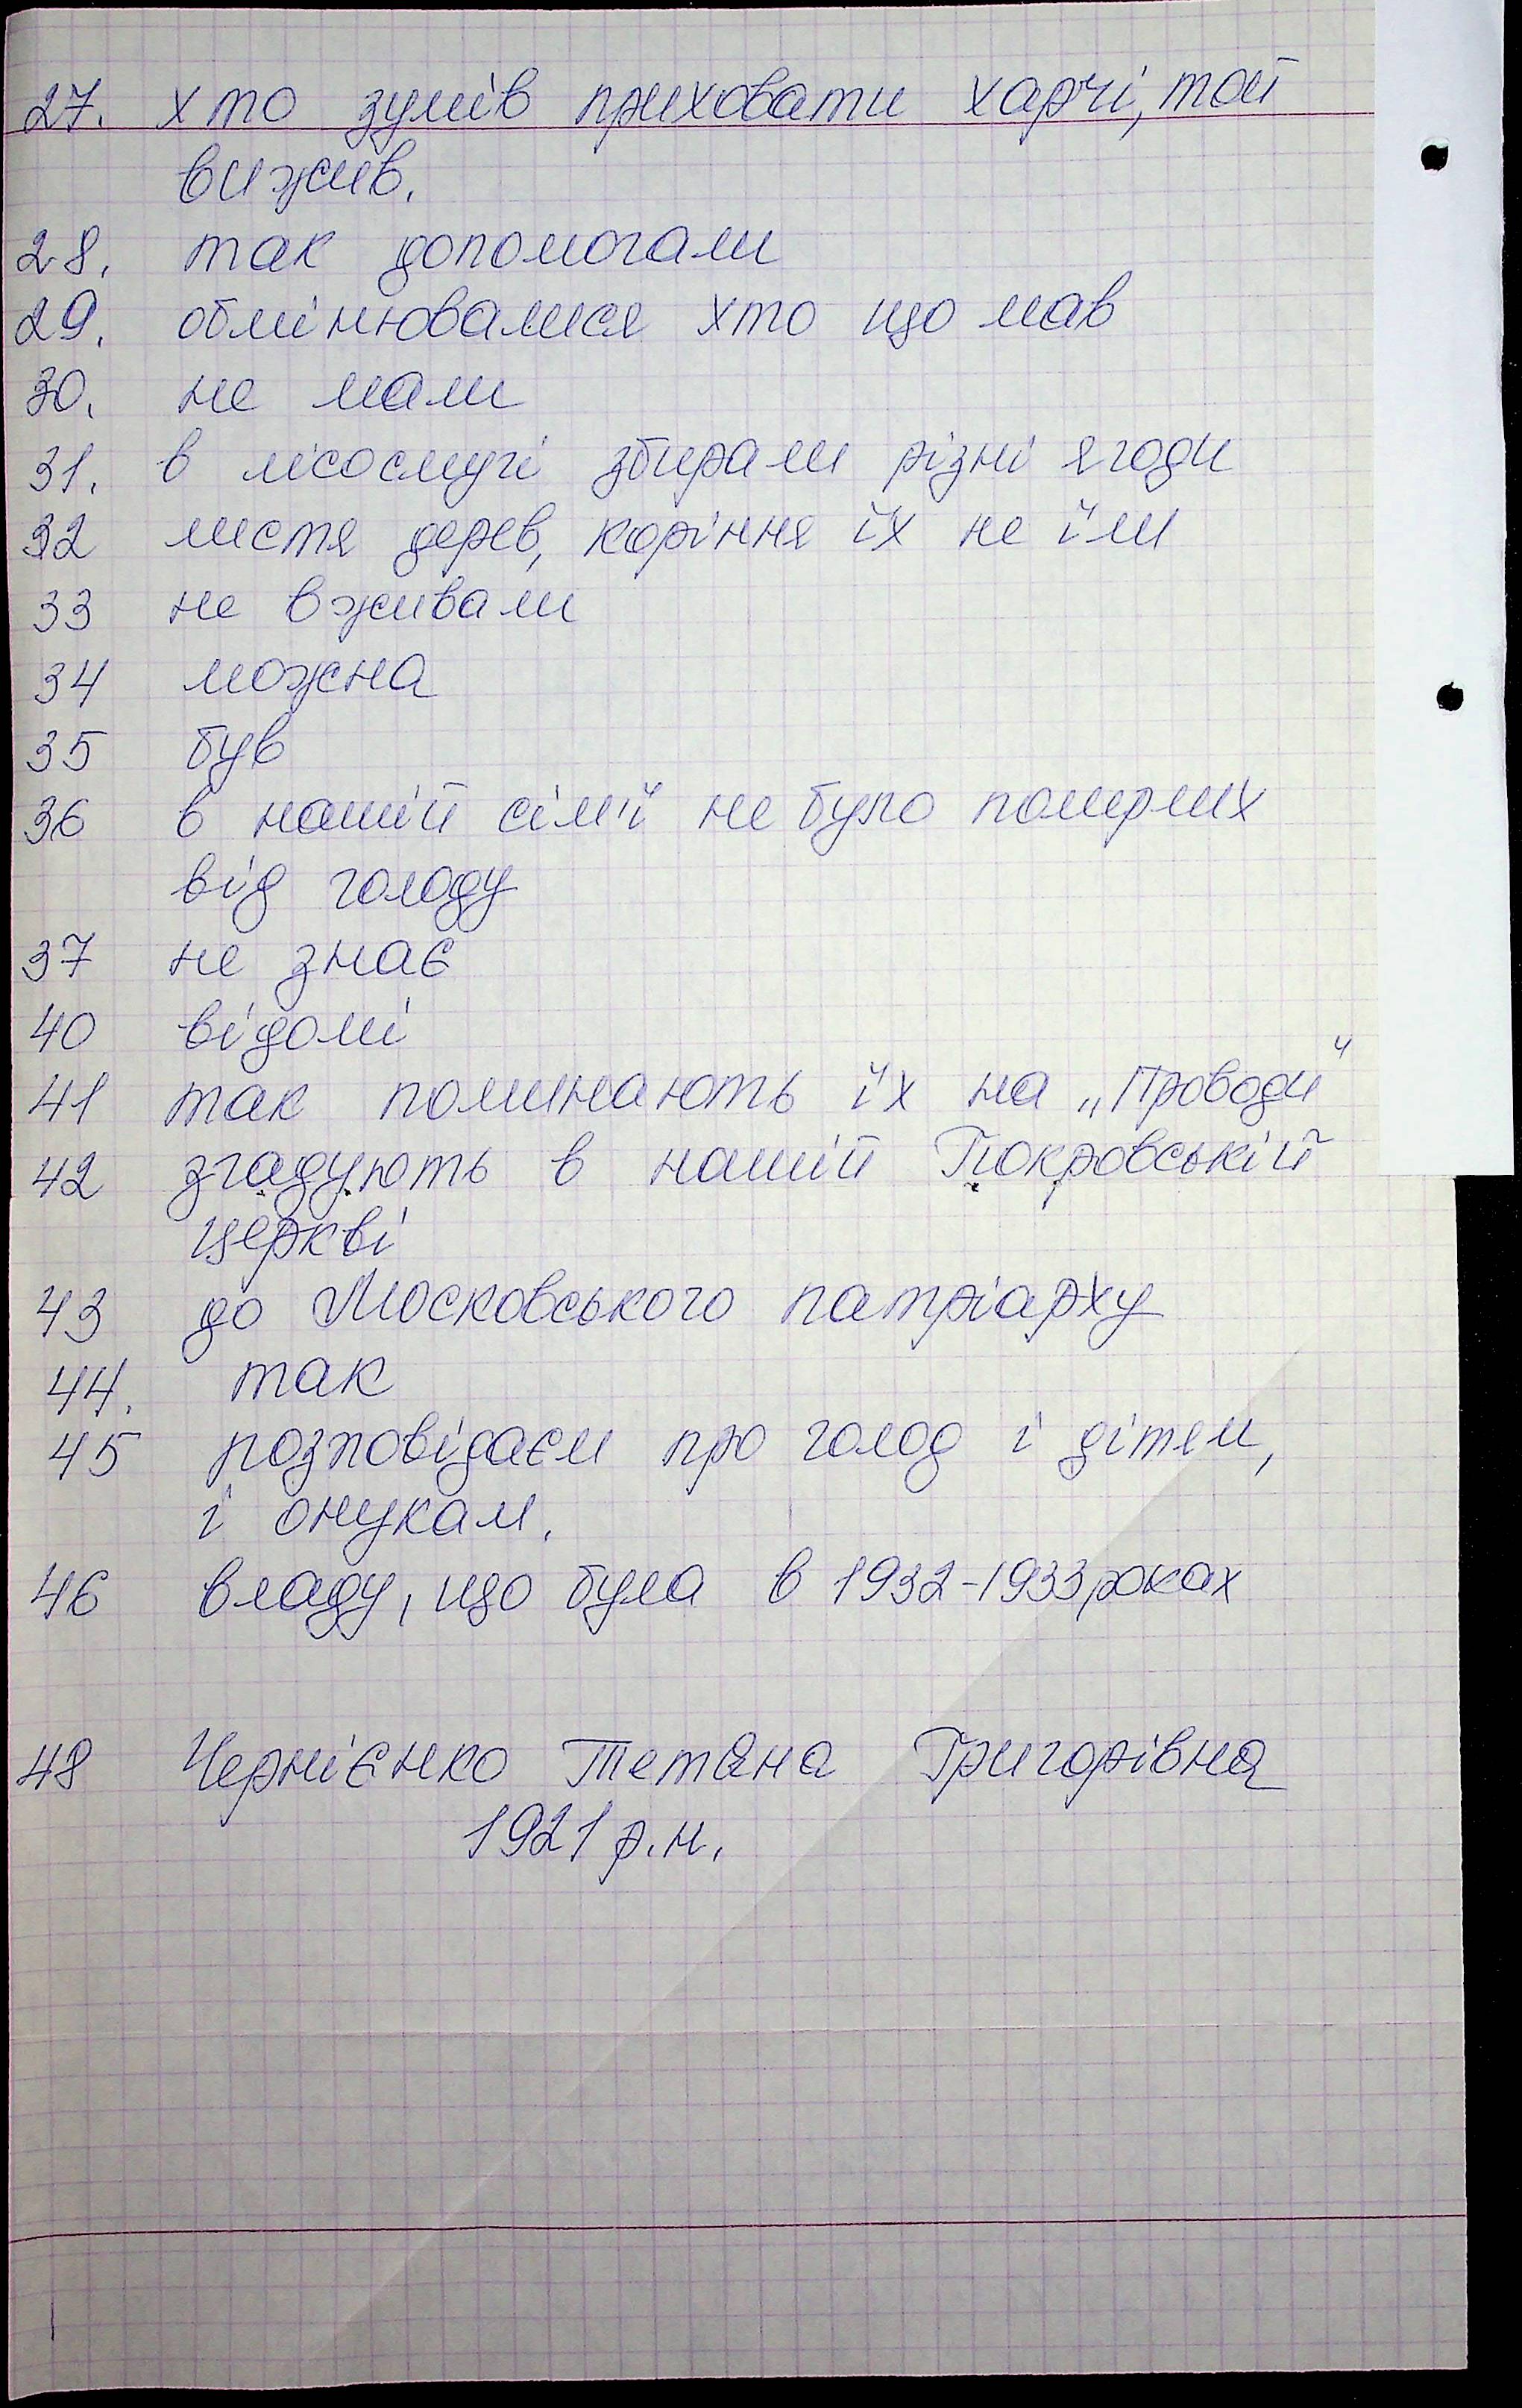 27. хто зумів приховати харчі, той
вижив.
28. так допомогали
29. обмінювалися хто що мав
30. не мали
31. в лісосмугі збирали різні ягоди
32 листя дерев, коріння їх не їли
33 не вживали
34 можна
35 був
36 в нашій сім'ї не було померлих
від голоду
37 не знає
40 відомі
41 так поминають їх на „Проводи"
42 згадують в нашій Покровській
церкві
43 до Московського патріарху
44. так
45 розповідаєм про голод і дітям,
і онукам.
46 владу, що була в 1932-1933 роках
48 Чернієнко Тетяна Григорівна
1921 р.н.